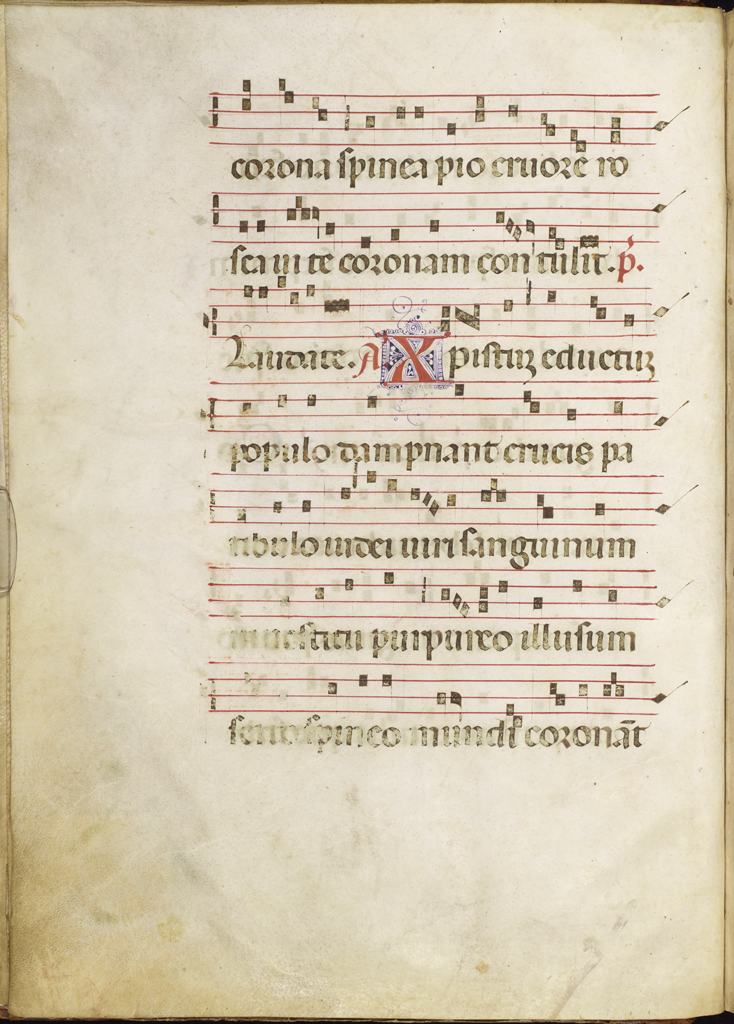 corona spinea pio cruore ro
sea uite coronam contulit. p̄.
Laudate. A. Xpistus eductus
populo dampnant crucis pa
tibulo iudei uiri sanguinum
in uestitu purpureo illusum
serto spineo mundi coronāt